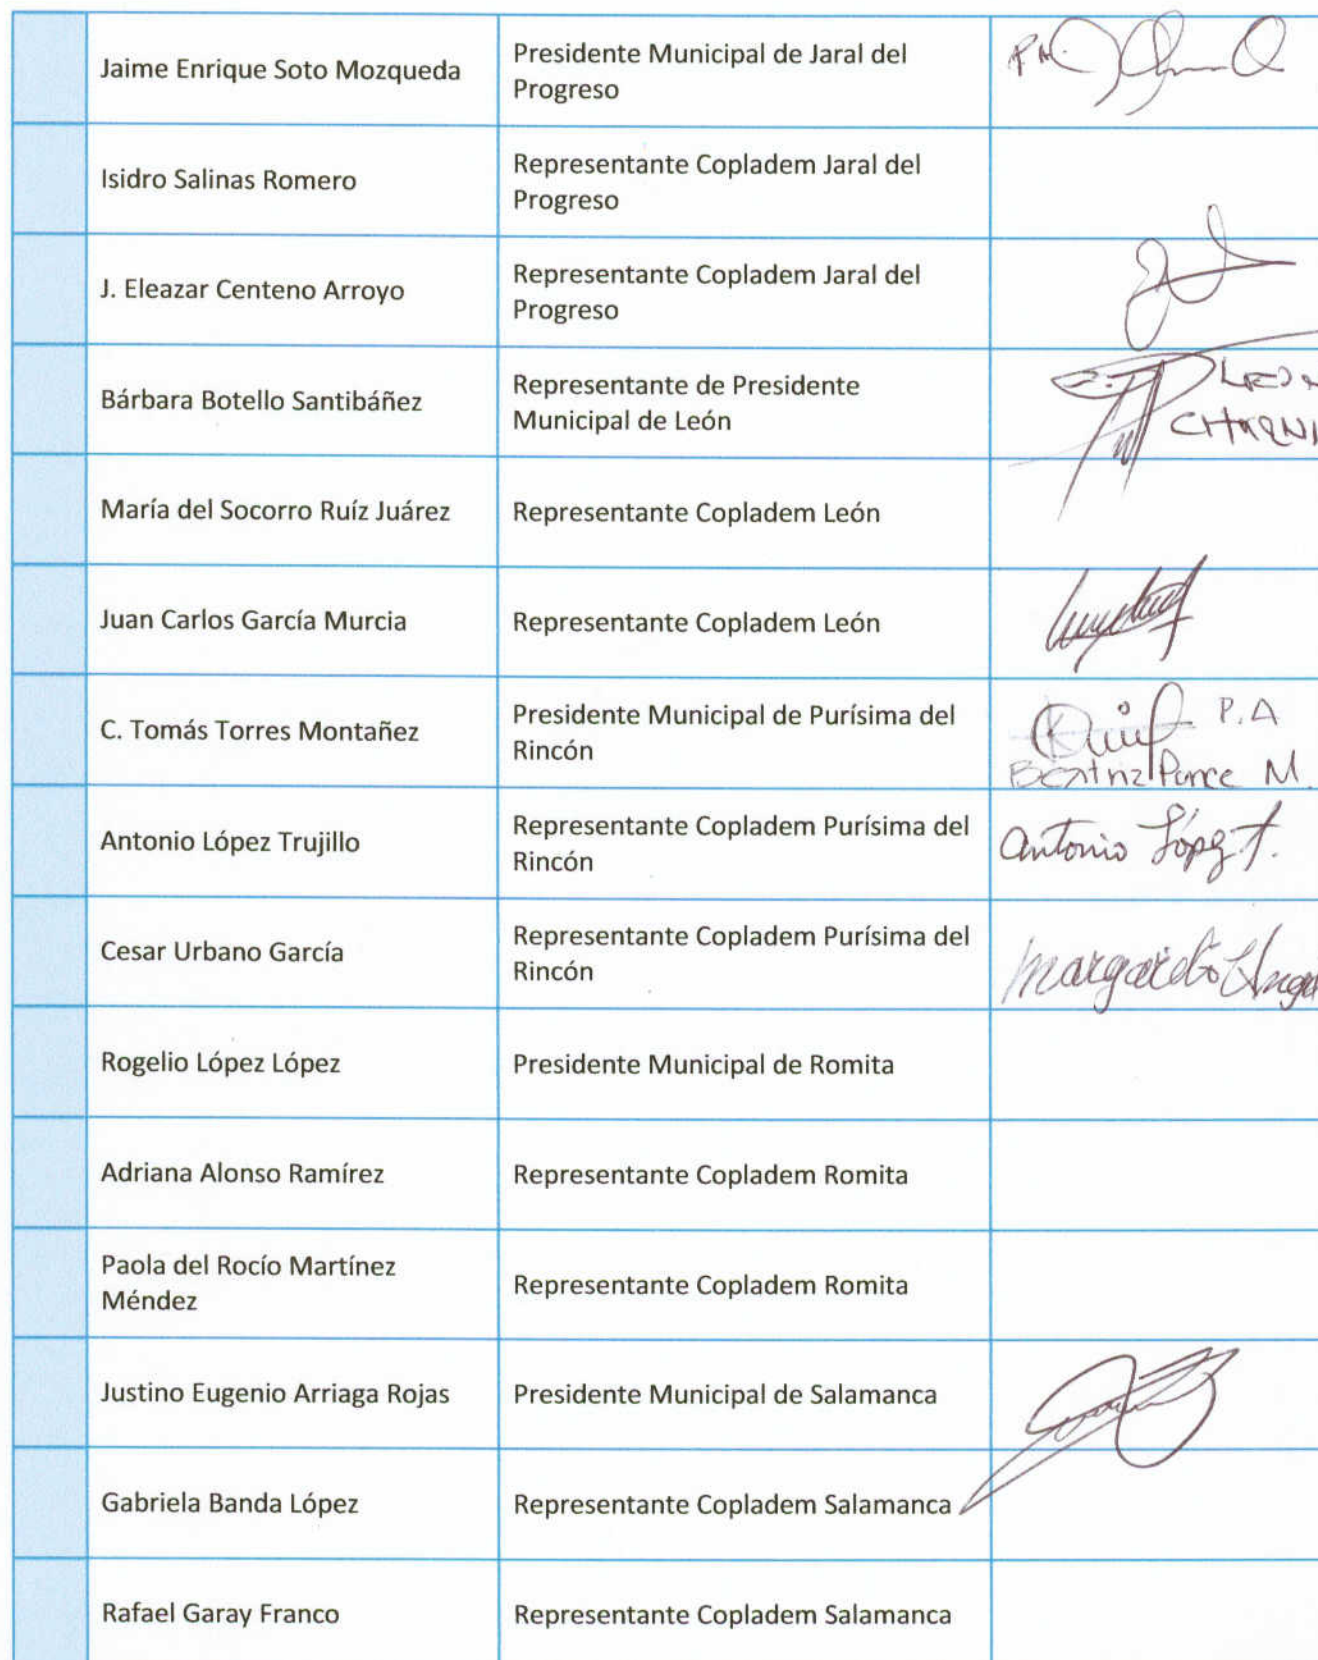 Jaime Enrique Soto Mozqueda
Presidente Municipal de Jaral del
Progreso
Isidro Salinas Romero
Representante Copladem Jaral del
Progreso
J. Eleazar Centeno Arroyo
Representante Copladem Jaral del
Progreso
Bárbara Botello Santibáñez
Representante de Presidente
Municipal de León
María del Socorro Ruíz Juárez
Representante Copladem León
Juan Carlos García Murcia
Representante Copladem León
C. Tomás Torres Montañez
Presidente Municipal de Purísima del
Rincón
P.A
Beatriz Ponce M.
Antonio López Trujillo
Representante Copladem Purísima del
Rincón
Antonio López T.
Cesar Urbano García
Representante Copladem Purísima del
Rincón
Margarito
Rogelio López López
Presidente Municipal de Romita
Adriana Alonso Ramírez
Representante Copladem Romita
Paola del Rocío Martínez
Méndez
Representante Copladem Romita
Justino Eugenio Arriaga Rojas
Presidente Municipal de Salamanca
Gabriela Banda López
Representante Copladem Salamanca
Rafael Garay Franco
Representante Copladem Salamanca